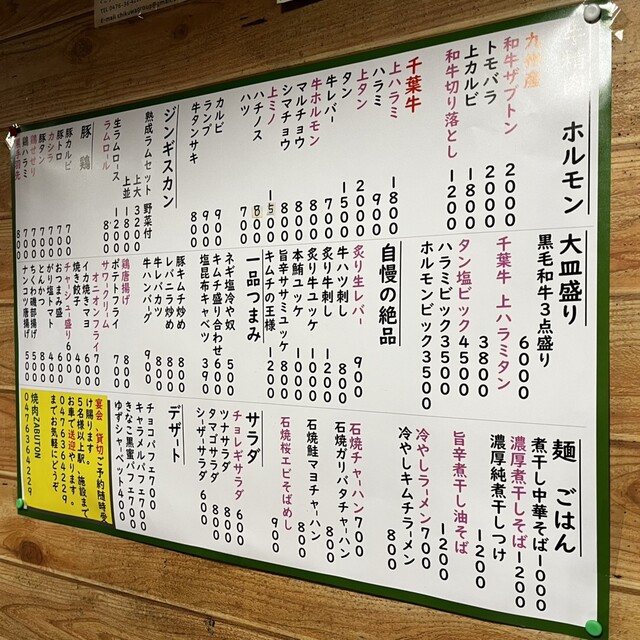 ホルモン
九州産
和牛ザブトン 2000
トモバラ 2000
上カルビ 1800
和牛切り落とし 1200
千葉牛
上ハラミ 1800
ハラミ 900
上タン 2000
タン 1500
牛レバー 700
牛ホルモン
マルチョウ
シマチョウ
上ミノ
ハチノス
ハツ 700
カルビ 900
ランプ 900
牛タンサキ
ジンギスカン
熟成ラムセット 野菜付
上大 3200
上並 1800
生ラムロース 1200
ラムロール 800
豚 鶏
豚カルビ 700
豚トロ
豚タン
カシラ
鶏せせり 700
鶏ハラミ
大皿盛り
黒毛和牛3点盛り 6000
千葉牛 上ハラミタン 3800
タン塩ビック 4500
ハラミビック 3500
ホルモンビック 3500
自慢の絶品
炙り生レバー 900
牛ハツ刺し 800
炙り牛刺し 1200
炙り牛ユッケ 1000
本鮪ユッケ 1000
旨辛ササミユッケ 800
キムチの王様 1200
一品つまみ
ネギ塩冷や奴 500
キムチ盛り合わせ 600
塩昆布キャベツ 390
豚キムチ炒め 800
レバニラ炒め 800
牛レバカツ
牛ハンバーグ 900
鶏唐揚げ 800
ポテトフライ
サワークリーム
オニオンフライ 700
イカ焼きマヨ 600
焼き餃子 400
チャーシュー盛り 600
おつまみ盛
がり塩トマト
とんかつ
ちくわ磯部揚げ 500
ナンコツ唐揚げ 500
麺 ごはん
煮干し中華そば 1000
濃厚煮干しそば 1200
濃厚純煮干しつけ 1200
旨辛煮干し油そば 1200
冷やしラーメン 700
冷やしキムチラーメン 800
石焼チャーハン 700
石焼ガリバタチャーハン 800
石焼鮭マヨチャーハン 800
石焼桜エビそばめし 900
サラダ
チョレギサラダ 600
ツナサラダ 800
タマゴサラダ 800
シーザーサラダ 600
デザート
チョコパフェ 700
キャラメルパフェ 700
きなこ黒蜜パフェ 700
ゆずシャーベット 400
宴会 貸切ご予約随時受
け賜ります。
5名様以上駅、施設まで
お車で送迎やります。
0476364229
までお気軽にどうぞ
焼肉ZABUTON
0476364229